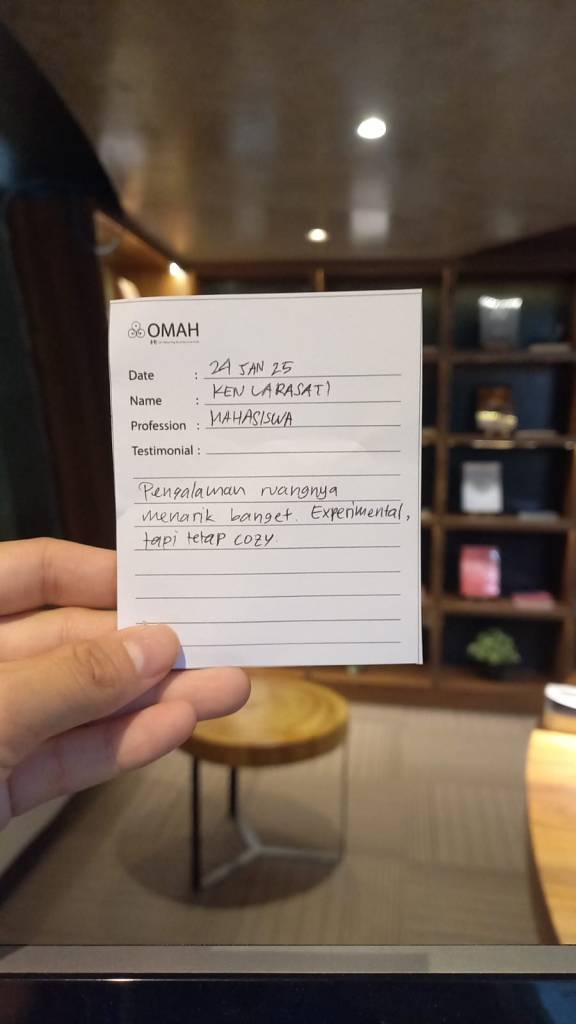 OMAH
Date : 24 JAN 25
Name : KEN LARASATI
Profession : MAHASISWA
Testimonial :
Pengalaman ruangnya
menarik banget. Experimental,
tapi tetap cozy.